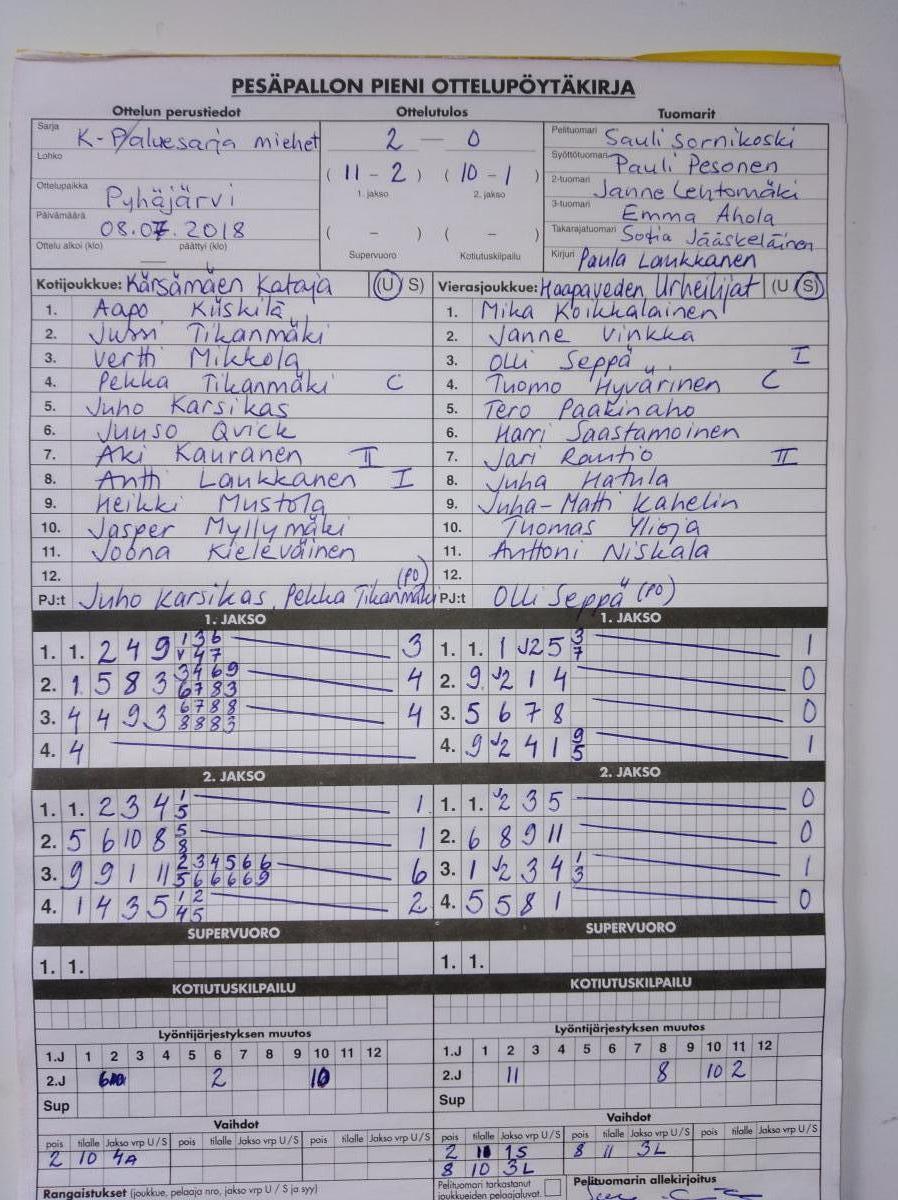 PESÄPALLON PIENI OTTELUPÖYTÄKIRJA
Ottelun perustiedot Ottelutulos Tuomarit
Sarja K-P/aluesarja miehet
Lohko
Ottelupaikka Pyhäjärvi
Päivämäärä 08.07.2018
Ottelu alkoi (klo) päättyi (klo)
2 — 0
( 11 - 2 ) ( 10 - 1 )
1. jakso 2. jakso
( - ) ( - )
Supervuoro Kotiutuskilpailu
Pelituomari Sauli Sornikoski
Syöttötuomari Pauli Pesonen
2-tuomari Janne Lehtomäki
3-tuomari Emma Ahola
Takarajatuomari Sofia Jääskeläinen
Kirjuri Paula Laukkanen
Kotijoukkue: Kärsämäen Kataja (U S)
1. Aapo Kiiskilä
2. Jussi Tikanmäki
3. Vertti Mikkola
4. Pekka Tikanmäki C
5. Juho Karsikas
6. Juuso Qvick
7. Aki Kauranen II
8. Antti Laukkanen I
9. Heikki Mustola
10. Jasper Myllymäki
11. Joona Kieleväinen
12.
PJ:t Juho Karsikas, Pekka Tikanmäki (PO)
Vierasjoukkue: Haapaveden Urheilijat (U S)
1. Mika Koikkalainen
2. Janne Vinkka
3. Olli Seppä I
4. Tuomo Hyvärinen C
5. Tero Paakinaho
6. Harri Saastamoinen
7. Jari Rautio II
8. Juha Hatula
9. Juha-Matti Kahelin
10. Thomas Ylioja
11. Anttoni Niskala
12.
PJ:t Olli Seppä (PO)
1. JAKSO
1. 1. 2 4 9 1 3 6 3
4 7
2. 1 5 8 3 3 4 6 9 4
6 7 8 3
3. 4 4 9 3 6 7 8 8 4
8 8 8 3
4. 4
1. JAKSO
1. 1. 1 J2 5 3 1
7
2. 9 J2 1 4 0
3. 5 6 7 8 0
4. 9 J2 4 1 9 1
5
2. JAKSO
1. 1. 2 3 4 1 1
5
2. 5 6 10 8 5 1
8
3. 9 9 1 11 2 3 4 5 6 6 6
5 6 6 6 6 9
4. 1 4 3 5 1 2 2
4 5
2. JAKSO
1. 1. J2 3 5 0
2. 6 8 9 11 0
3. 1 J2 3 4 1 1
3
4. 5 5 8 1 0
SUPERVUORO SUPERVUORO
1. 1. 1. 1.
KOTIUTUSKILPAILU KOTIUTUSKILPAILU
Lyöntijärjestyksen muutos
1.J 1 2 3 4 5 6 7 8 9 10 11 12
2.J 2 10
Sup
Lyöntijärjestyksen muutos
1.J 1 2 3 4 5 6 7 8 9 10 11 12
2.J 11 8 10 2
Sup
Vaihdot
pois tilalle Jakso vrp U/S pois tilalle Jakso vrp U/S pois tilalle Jakso vrp U/S
2 10 4A
Vaihdot
pois tilalle Jakso vrp U/S pois tilalle Jakso vrp U/S pois tilalle Jakso vrp U/S
2 1S 8 11 3L
8 10 3L
Rangaistukset (joukkue, pelaaja nro, jakso vrp U / S ja syy)
Pelituomari tarkastanut joukkueiden pelaajaluvat.
Pelituomarin allekirjoitus